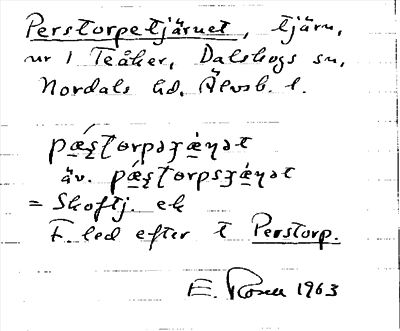 Perstorpetjärnet, tjärn,
nr 1 Teåker, Dalskogs sn,
Nordals hd, Älvsb. l.
pǽʂʈorpəʒæ̀ɳət
äv. pǽʂʈorpsʒæ̀ɳət
= Skoftj. ek
F. led efter t Perstorp.
E. Rosell 1963